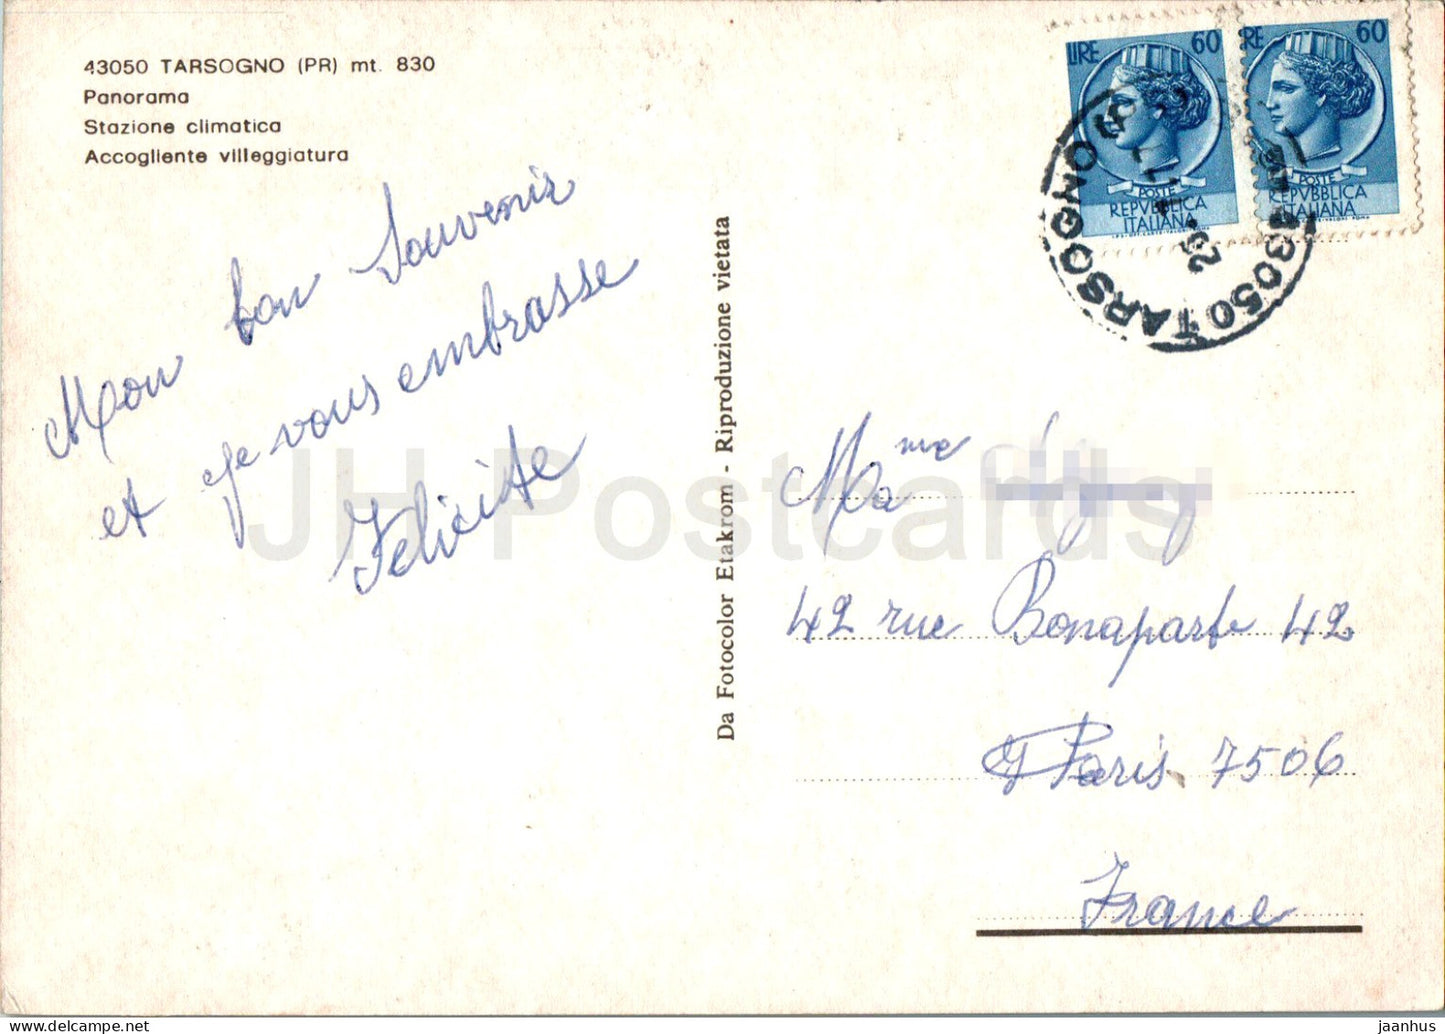 43050 TARSOGNO (PR) mt. 830
Panorama
Stazione climatica
Accogliente villeggiatura
Mon bon Souvenir
et je vous embrasse
Felicite
Da Fotocolor Etakrom - Riproduzione vietata
LIRE 60
POSTE
REPVBBLICA
ITALIANA
RE 60
POSTE
REPVBBLICA
ITALIANA
43050 TARSOGNO
Mame
42 rue Bonaparte 42
Paris 7506
France
JH Postcards
jaanhus - EStamps.net